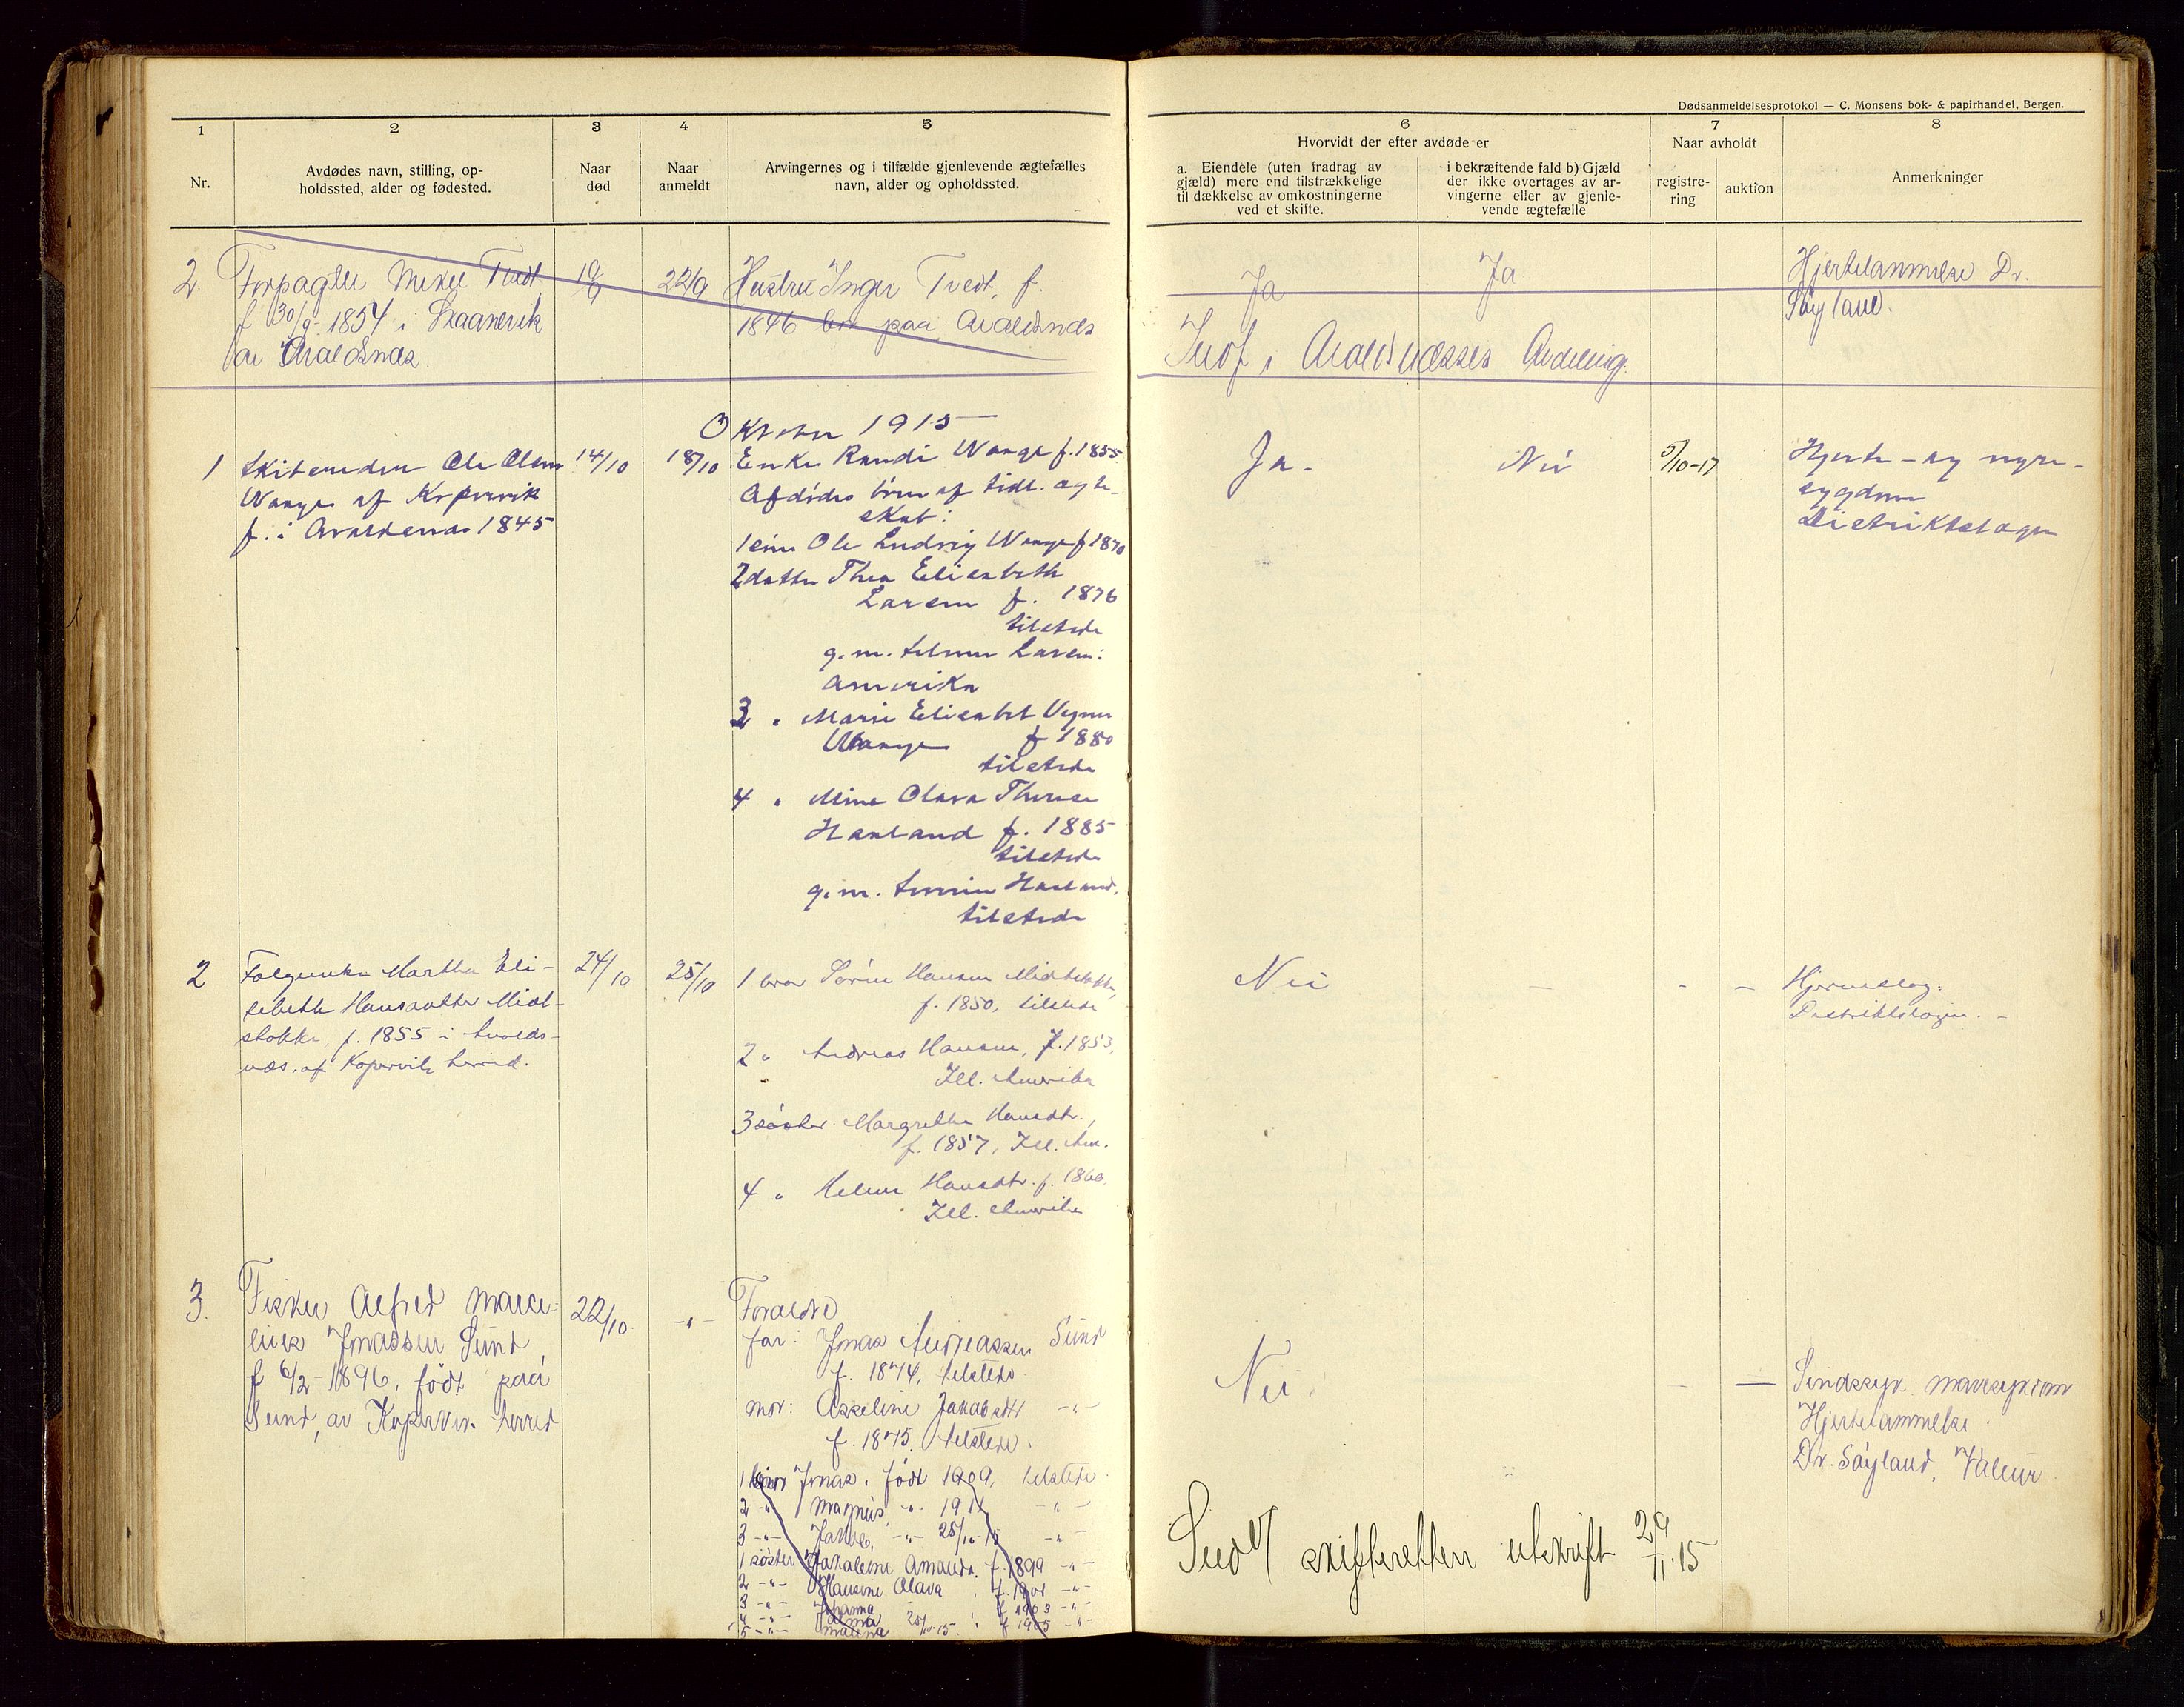 Dødsanmeldelsesprotokol — C. Monsens bok- & papirhandel, Bergen.
1
2
3
4
5
6
7
8
Nr.
Avdødes navn, stilling, op-
holdssted, alder og fødested.
Naar
død
Naar
anmeldt
Arvingernes og i tilfælde gjenlevende ægtefælles
navn, alder og opholdssted.
Hvorvidt der efter avdøde er
a. Eiendele (uten fradrag av
gjæld) mere end tilstrækkelige
til dækkelse av omkostningerne
ved et skifte.
i bekræftende fald b) Gjæld
der ikke overtages av ar-
vingerne eller av gjenle-
vende ægtefælle
Naar avholdt
registre-
ring
auktion
Anmerkninger
2.
Forpagter Mikel Tvedt
f 30/9 1854 i Skaanevik
av Avaldsnæs
22/9
Hustru Inger Tvedt, f.
1846 paa Avaldsnæs
Ja
Ja
Hjertelammelse Dr.
Søyland.
Indf i Avaldsnæsses Avdeling.
Oktober 1915
1
Ole Olsen
Wange af Kopervik
f. i Avaldsnæs 1845
14/10
18/10
Enke Randi Wange f. 1855
Afdødes børn af tidl. ægte-
skab:
1 søn Ole Ludvig Wange f 1870
2 datter Thea Elisabeth
Larsen f. 1876
tilstede
g. m. Larsen:
Amerika
3 " Marie Elisabet
Wange f 1880
tilstede
4 " Mina Olava Therese
Hauland f. 1885
tilstede
g. m. Hauland,
tilstede
Ja -
Nei
5/10-17
Hjerte- og nyre-
sygdom
Distriktslægen
2
Martha Eli-
sebeth Hansdatter Midt-
stokke, f. 1855 i Avalds-
næs. af Kopervik herred.
24/10
25/10
1 bror Søren Hansen Midtstokke,
f. 1850, tilstede
2 " Andreas Hansen, f. 1853,
Ill. Amerika
3 søster Margrethe Hansdtr.,
f. 1857, Ill. Am.
4 " Helene Hansdtr. f. 1860,
Ill. Amerika
Nei
-
-
-
Hjerneslag:
Distriktslægen. -
3.
Fisker Alfred Marce-
lius Jonassen Sund
f 6/2 1896, født paa
Sund, av Kopervik herred
22/10.
-"-
Forældre
far: Jonas Andreassen Sund
f. 1874, tilstede
mor: Asseline Jakobsdtr -"-
f. 1875. tilstede.
1 bror Jonas. født 1909, tilstede
2 -"- Magnus, -"- 1911 -"-
3 -"- Jakob, -"- -"-
1 søster Jakobine Amanda. f. 1899 -"-
2 -"- Hansine Olava f. 1901 -"-
3 -"- Johanna f 1903 -"-
4 -"- f 1905 -"-
5 -"- Malina
Nei.
-
-
Sindssyk
Hjertelammelse
Dr. Søyland, Valeur
Sendt skifteretten utskrift 29/11.15